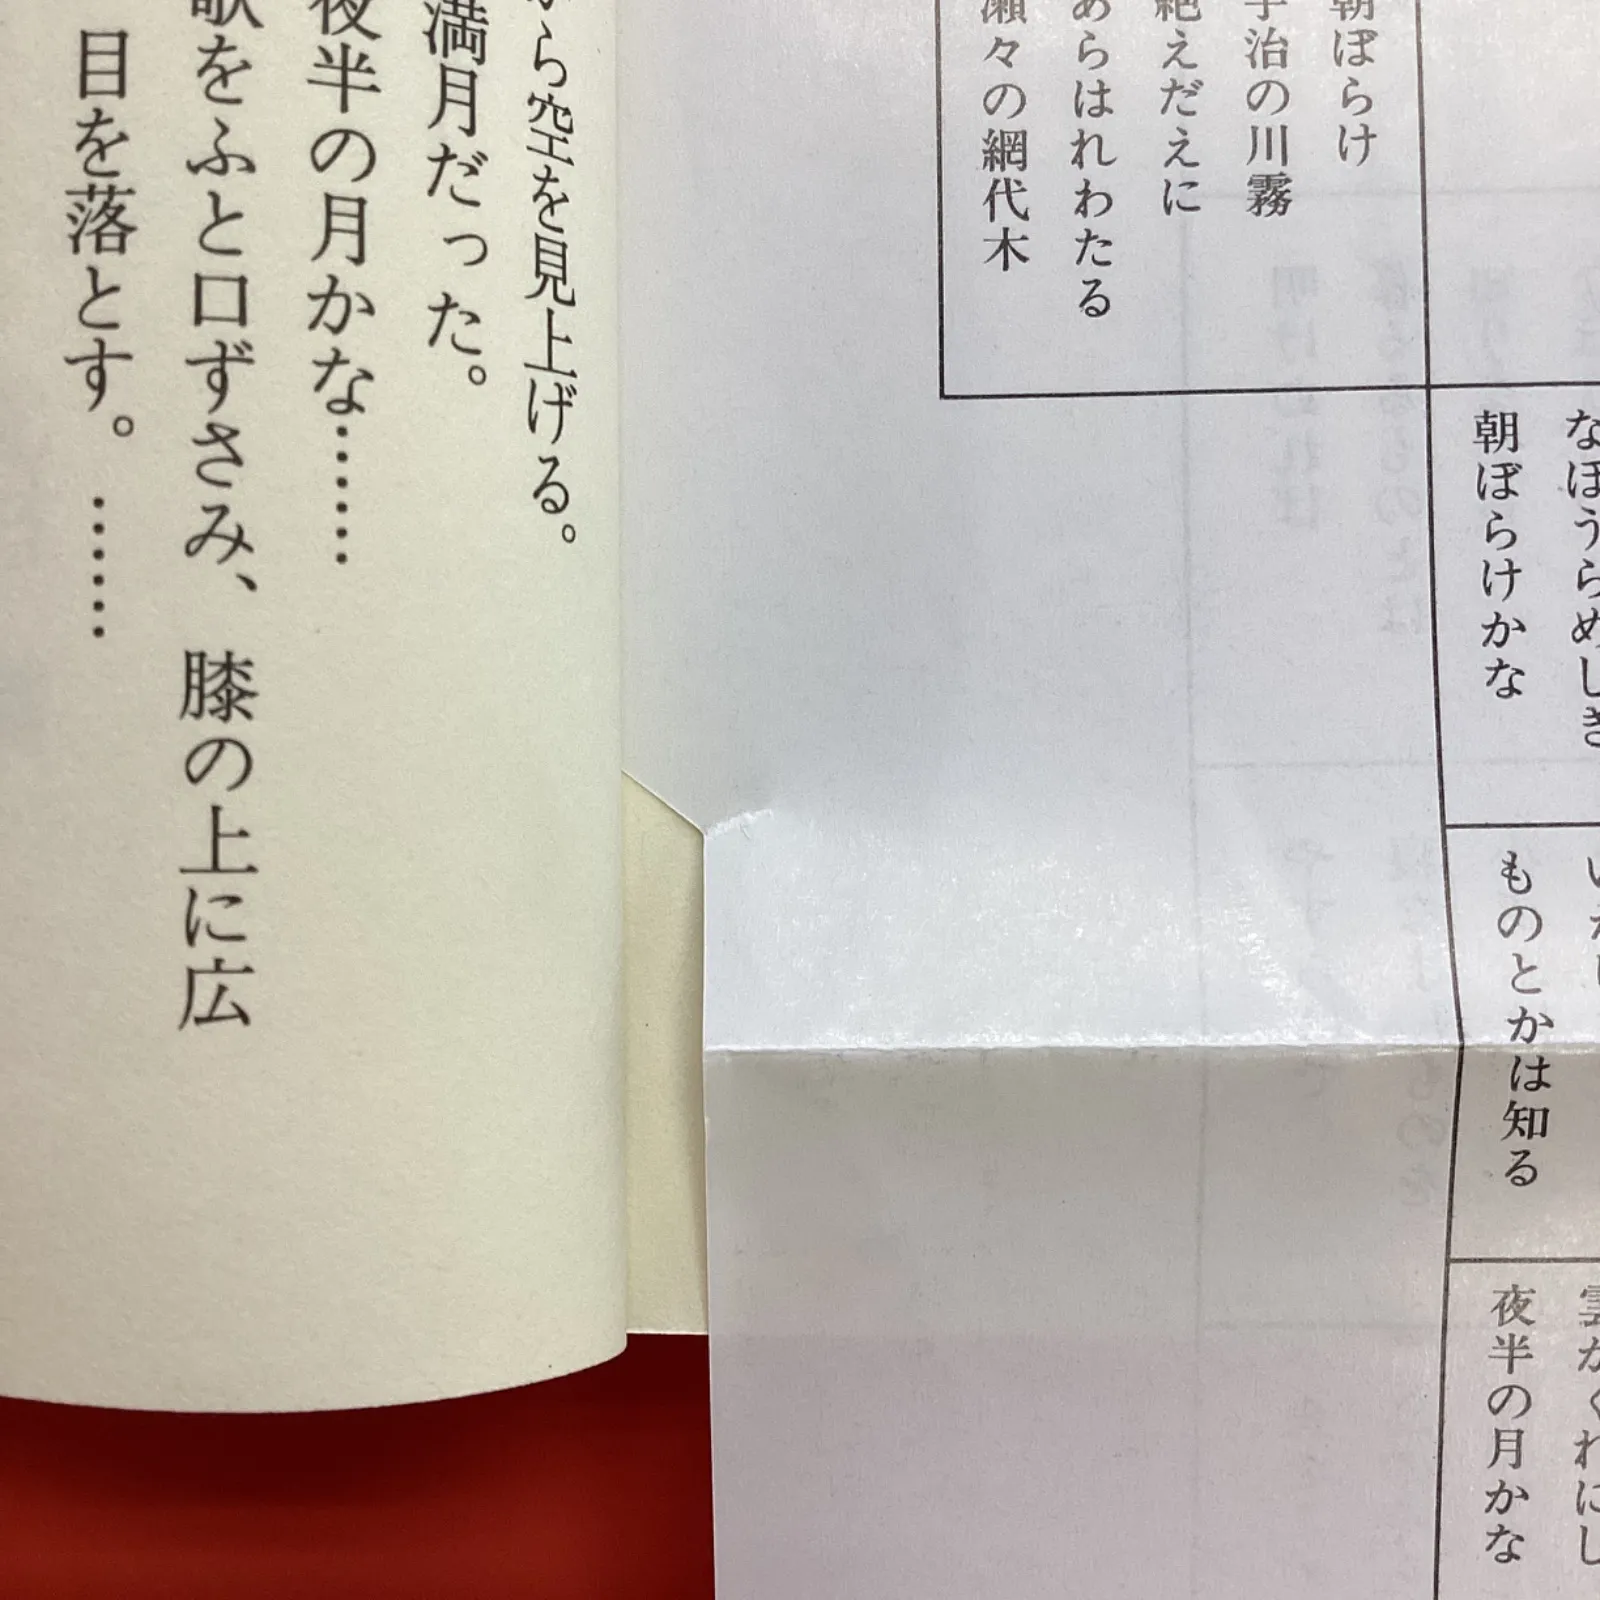 ら空を見上げる。
満月だった。
夜半の月かな……
歌をふと口ずさみ、膝の上に広
目を落とす。……
朝ぼらけ
宇治の川霧
絶えだえに
あらはれわたる
瀬々の網代木
なほうらめしき
朝ぼらけかな
ものとかは知る
雲がくれにし
夜半の月かな